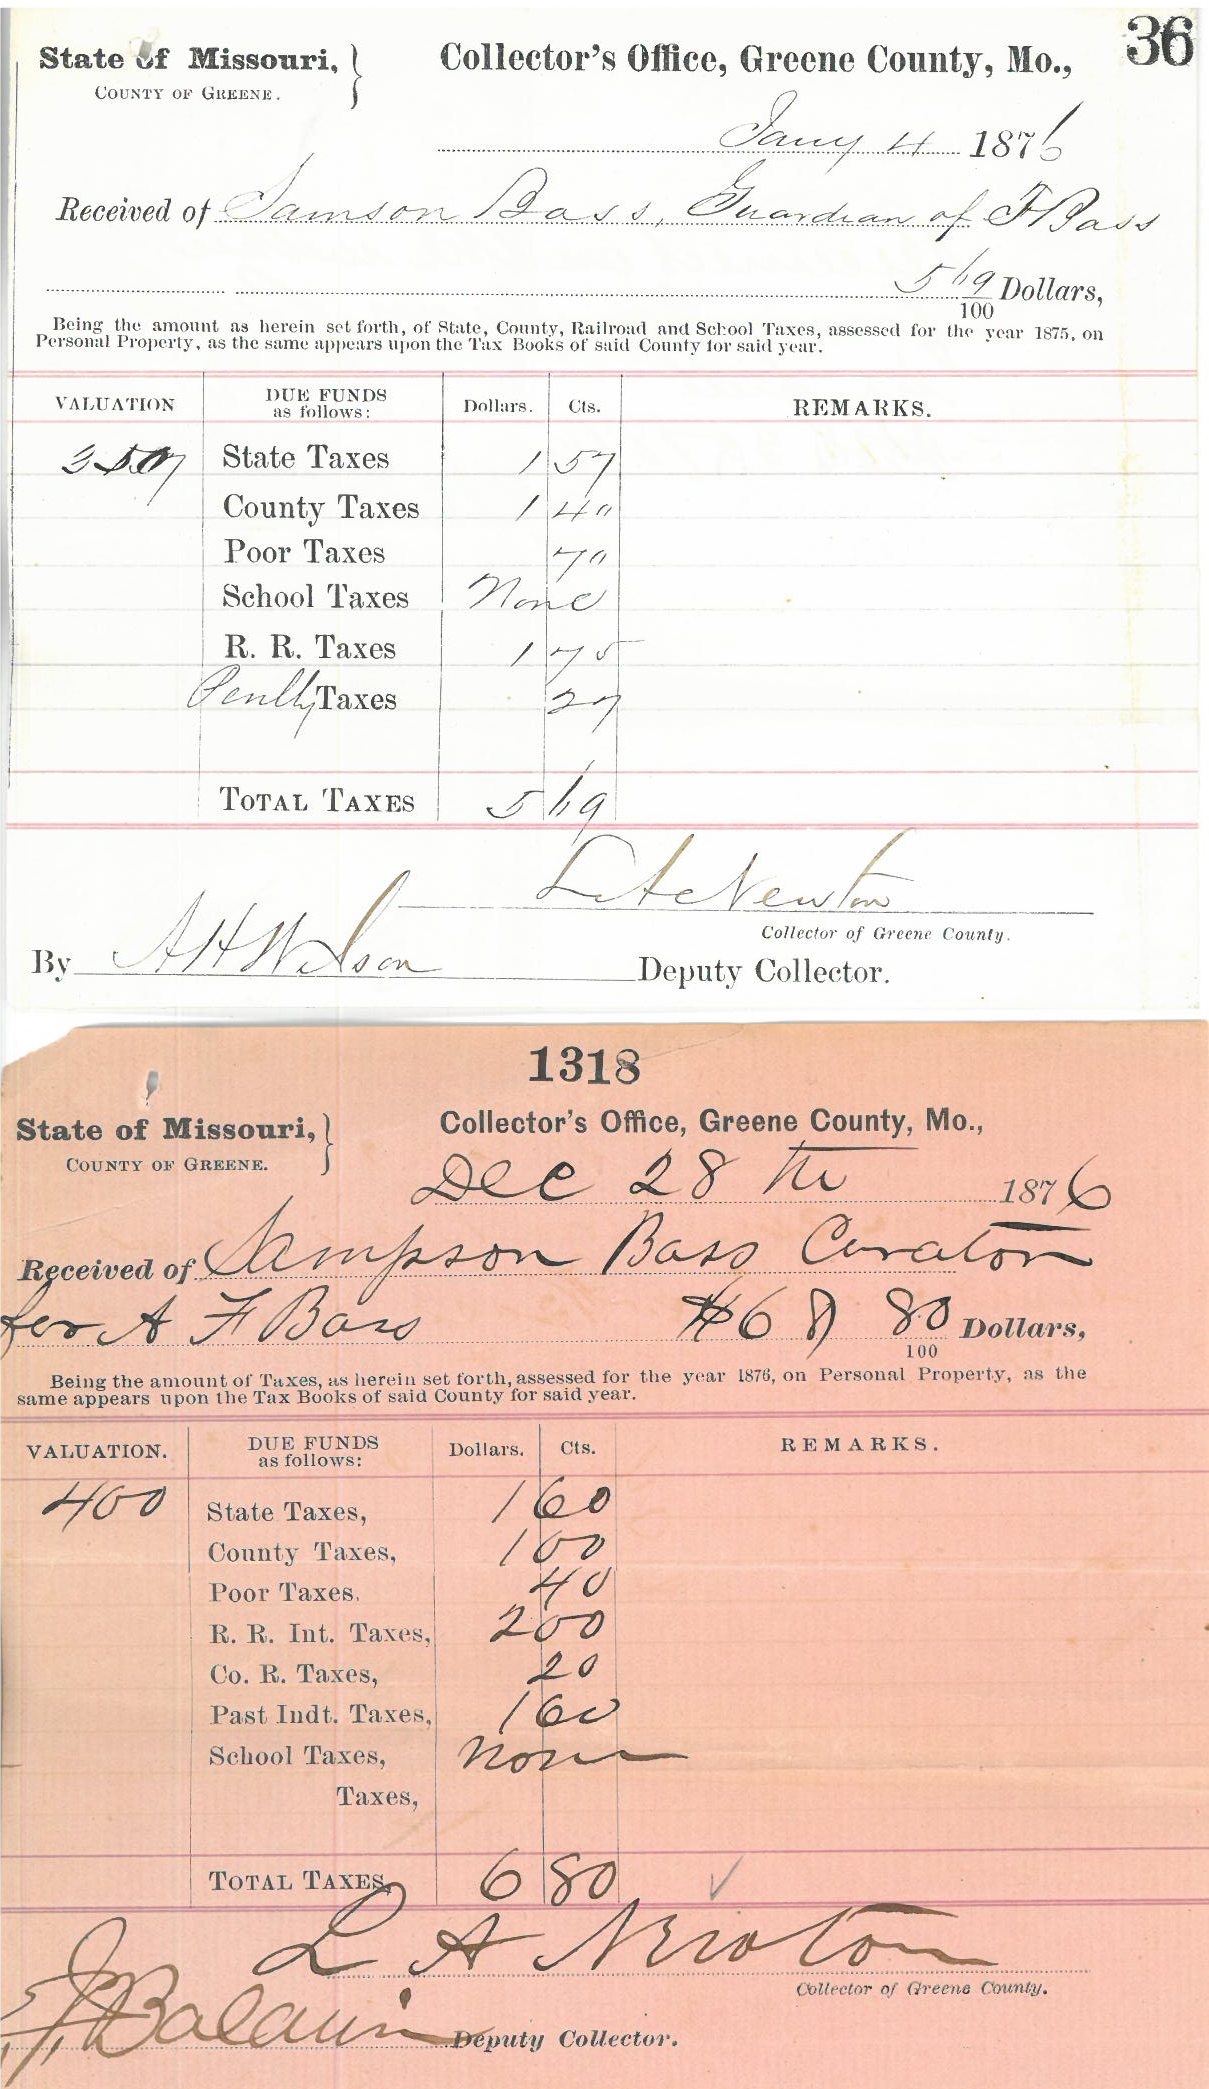 36
State of Missouri, } Collector's Office, Greene County, Mo.,
COUNTY OF GREENE.
Jany 4 1876
Received of Samson Bass, Guardian of F Bass
5 69/100 Dollars,
Being the amount as herein set forth, of State, County, Railroad and School Taxes, assessed for the year 1875, on
Personal Property, as the same appears upon the Tax Books of said County for said year.
VALUATION DUE FUNDS as follows: Dollars. Cts. REMARKS.
350 State Taxes 1 57
County Taxes 1 40
Poor Taxes 70
School Taxes None
R. R. Taxes 1 75
Penlty Taxes 27
TOTAL TAXES 5 69
L A Newton
Collector of Greene County.
By A H Wilson Deputy Collector.
1318
State of Missouri, } Collector's Office, Greene County, Mo.,
COUNTY OF GREENE.
Dec 28 th 1876
Received of Sampson Bass Curator
for A F Bass $6 80/100 Dollars,
Being the amount of Taxes, as herein set forth, assessed for the year 1876, on Personal Property, as the
same appears upon the Tax Books of said County for said year.
VALUATION. DUE FUNDS as follows: Dollars. Cts. REMARKS.
400 State Taxes, 1 60
County Taxes, 1 00
Poor Taxes. 40
R. R. Int. Taxes, 2 00
Co. R. Taxes, 20
Past Indt. Taxes, 1 60
School Taxes, None
Taxes,
TOTAL TAXES, 6 80
L A Newton
Collector of Greene County.
E J Baldwin Deputy Collector.